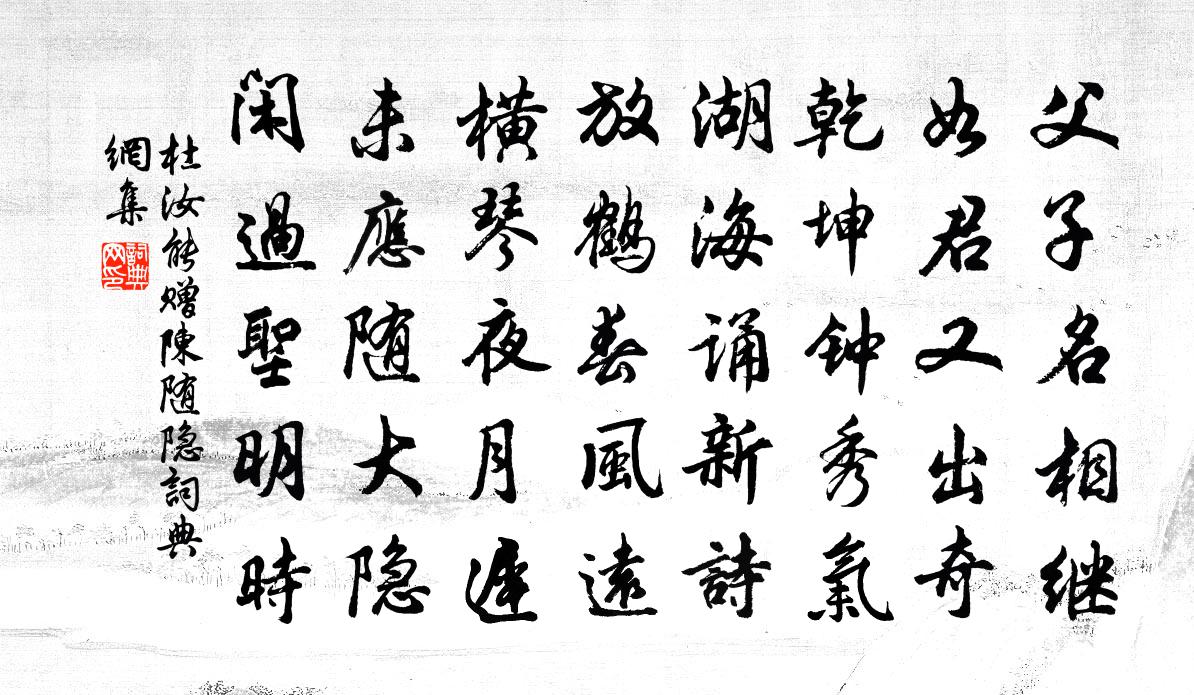 父子名相继
如君又出奇
乾坤钟秀氣
湖海诵新詩
放鶴春風遠
橫琴夜月遲
未應随大隐
閑過聖明時
杜汝能赠陳随隐詞典
網集
詞典
网印